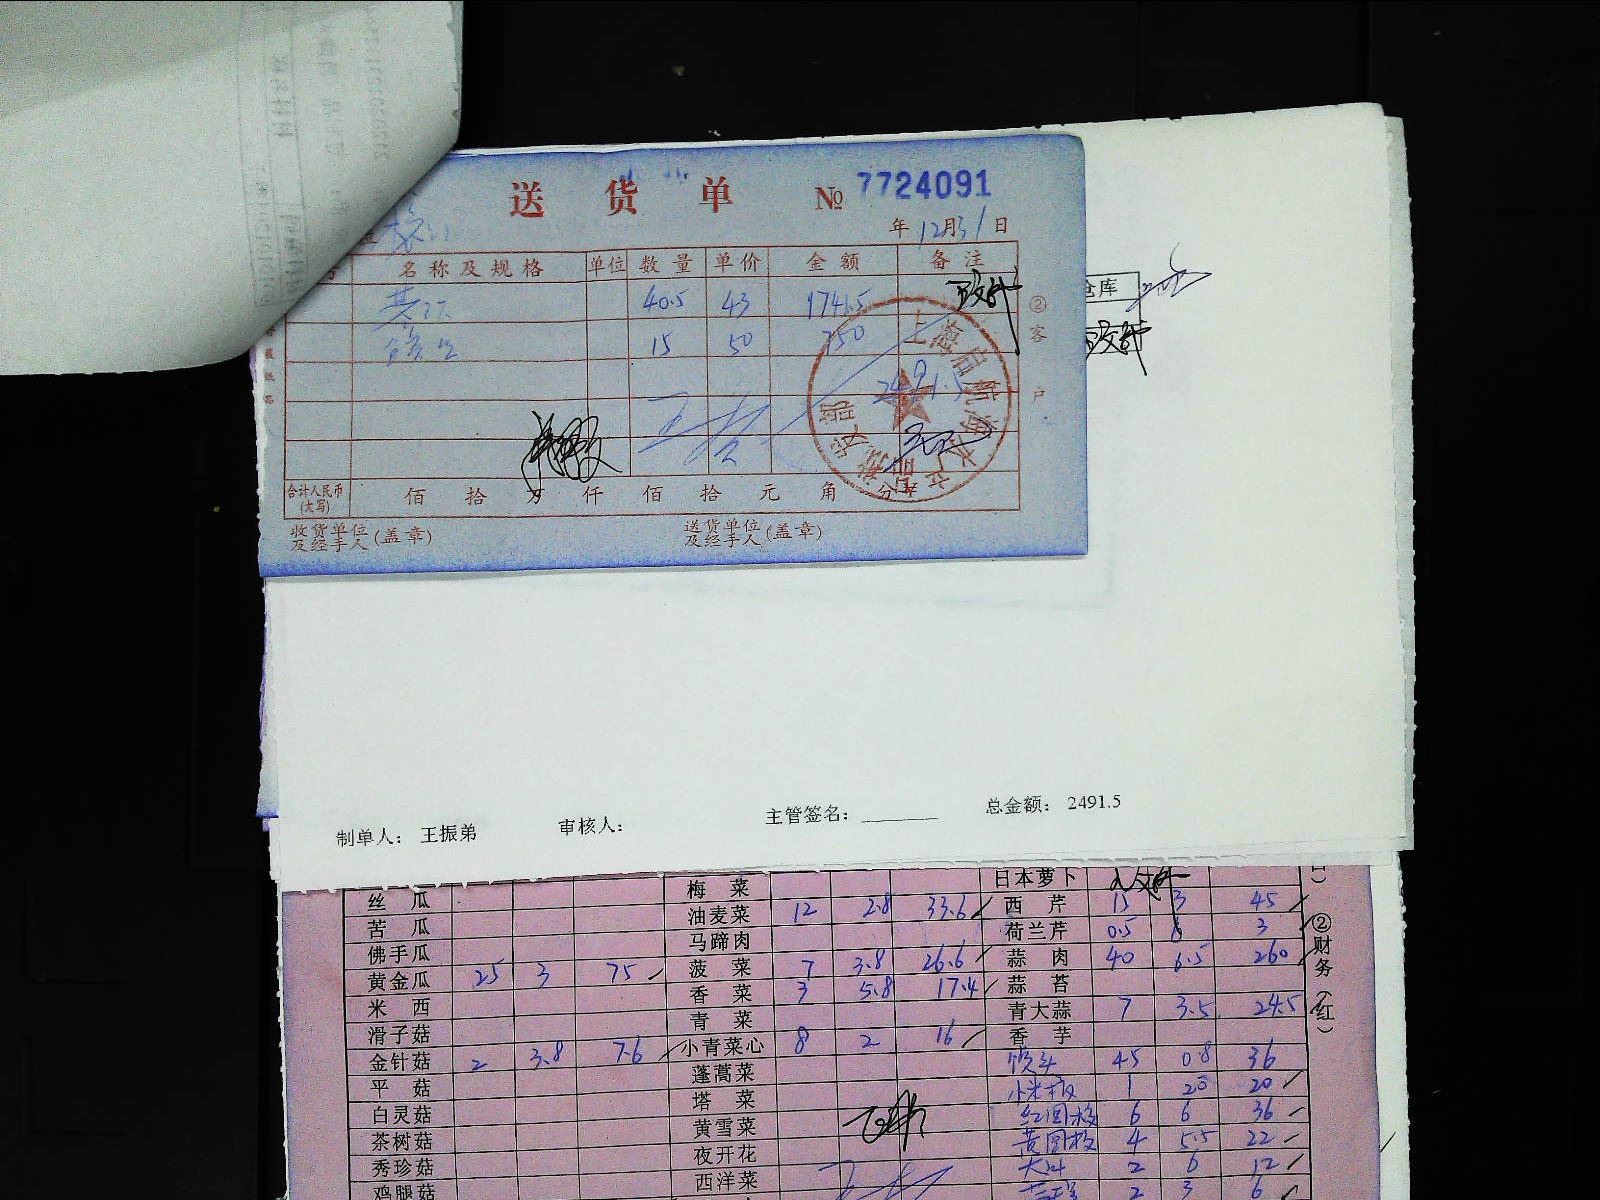 送货单 № 7724091
年12月31日
名称及规格 单位 数量 单价 金额 备注
40.5 43 1741.5
15 50 750
2491.5
合计人民币(大写) 佰 拾 万 仟 佰 拾 元 角 分
收货单位及经手人(盖章) 送货单位及经手人(盖章)
②客户
仓库
制单人: 王振弟 审核人: 主管签名: 总金额: 2491.5
丝瓜 梅菜 日本萝卜
苦瓜 油麦菜 12 2.8 33.6 西芹 15 3 45
佛手瓜 马蹄肉 荷兰芹 0.5 6 3
黄金瓜 25 3 75 菠菜 7 3.8 26.6 蒜肉 40 6.5 260
米西 香菜 3 5.8 17.4 蒜苔
滑子菇 青菜 青大蒜 7 3.5 24.5
金针菇 2 3.8 7.6 小青菜心 8 2 16 香芋
平菇 蓬蒿菜 馒头 45 0.8 36
白灵菇 塔菜 小米椒 1 20 20
茶树菇 黄雪菜 红圆椒 6 6 36
秀珍菇 夜开花 黄圆椒 4 5.5 22
鸡腿菇 西洋菜 2 6 12
2 3 6
②财务(红)